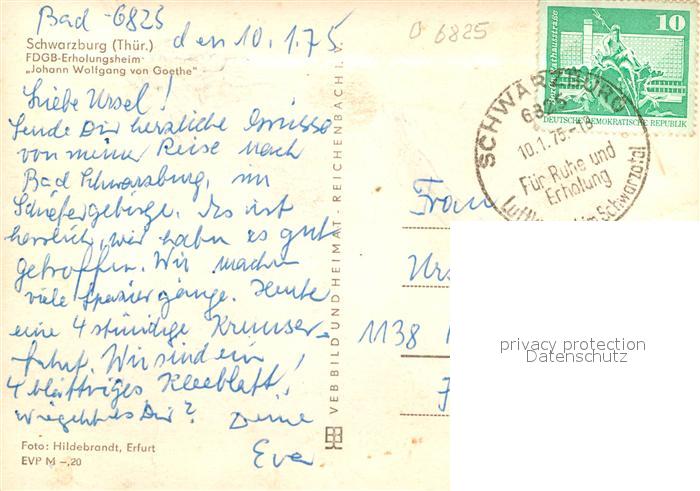 Bad -6825
den 10.1.75
O 6825
Schwarzburg (Thür.)
FDGB-Erholungsheim
„Johann Wolfgang von Goethe"
Liebe Ursel!
Sende Dir herzliche Grüsse
von meiner Reise nach
Bad Schwarzburg, im
Schiefergebirge. Es ist
herrlich, wir haben es gut
getroffen. Wir machen
viele Spaziergänge. Heute
eine 4 stündige Kremser-
fahrt. Wir sind ein
4 blättriges Kleeblatt!
Wie geht es Dir? Deine
Eva
Foto: Hildebrandt, Erfurt
EVP M –,20
VEB BILD UND HEIMAT · REICHENBACH I. V.
10
DEUTSCHE DEMOKRATISCHE REPUBLIK
SCHWARZBURG
6825
10.1.75-18
Für Ruhe und
Erholung
im Schwarzatal
Frau
Urs
1138
privacy protection
Datenschutz